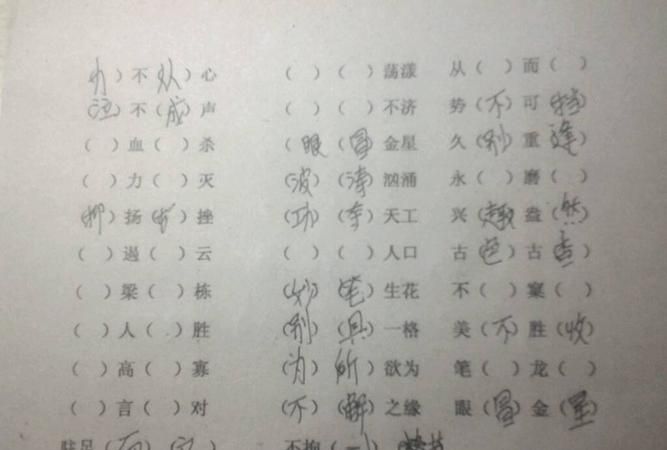 （力）不（从）心 （ ）（ ）荡漾 从（ ）而（ ）
（泣）不（成）声 （ ）（ ）不济 势（不）可（挡）
（ ）血（ ）杀 （眼）（冒）金星 久（别）重（逢）
（ ）力（ ）灭 （波）（涛）汹涌 永（ ）磨（ ）
（抑）扬（ ）挫 （巧）（夺）天工 兴（趣）盎（然）
（ ）遏（ ）云 （ ）（ ）人口 古（色）古（香）
（ ）梁（ ）栋 （妙）（笔）生花 不（ ）窠（ ）
（ ）人（ ）胜 （别）（具）一格 美（不）胜（收）
（ ）高（ ）寡 （为）（所）欲为 笔（ ）龙（ ）
（ ）言（ ）对 （不）（解）之缘 眼（冒）金（星）
驻足（ ）（ ） 不拘（一）